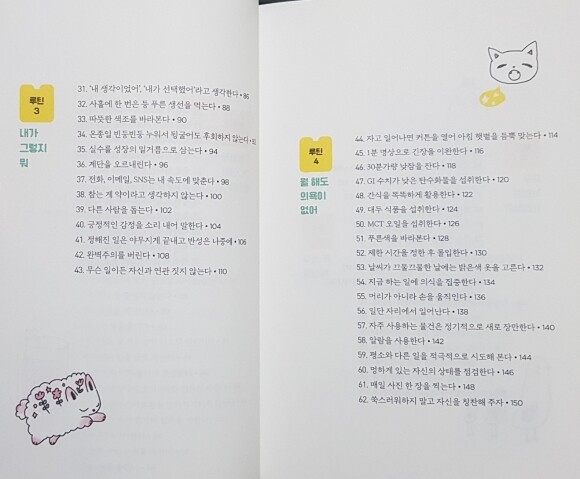 루틴
3
내가
그렇지
뭐
31. '내 생각이었어', '내가 선택했어'라고 생각한다 • 86
32. 사흘에 한 번은 등 푸른 생선을 먹는다 • 88
33. 따뜻한 색조를 바라본다 • 90
34. 온종일 빈둥빈둥 누워서 뒹굴어도 후회하지 않는다 • 92
35. 실수를 성장의 밑거름으로 삼는다 • 94
36. 계단을 오르내린다 • 96
37. 전화, 이메일, SNS는 내 속도에 맞춘다 • 98
38. 참는 게 약이라고 생각하지 않는다 • 100
39. 다른 사람을 돕는다 • 102
40. 긍정적인 감정을 소리 내어 말한다 • 104
41. 정해진 일은 야무지게 끝내고 반성은 나중에 • 106
42. 완벽주의를 버린다 • 108
43. 무슨 일이든 자신과 연관 짓지 않는다 • 110
루틴
4
뭘 해도
의욕이
없어
44. 자고 일어나면 커튼을 열어 아침 햇볕을 듬뿍 맞는다 • 114
45. 1분 명상으로 긴장을 이완한다 • 116
46. 30분가량 낮잠을 잔다 • 118
47. GI 수치가 낮은 탄수화물을 섭취한다 • 120
48. 간식을 똑똑하게 활용한다 • 122
49. 대두 식품을 섭취한다 • 124
50. MCT 오일을 섭취한다 • 126
51. 푸른색을 바라본다 • 128
52. 제한 시간을 정한 후 몰입한다 • 130
53. 날씨가 끄물끄물한 날에는 밝은색 옷을 고른다 • 132
54. 지금 하는 일에 의식을 집중한다 • 134
55. 머리가 아니라 손을 움직인다 • 136
56. 일단 자리에서 일어난다 • 138
57. 자주 사용하는 물건은 정기적으로 새로 장만한다 • 140
58. 알람을 사용한다 • 142
59. 평소와 다른 일을 적극적으로 시도해 본다 • 144
60. 멍하게 있는 자신의 상태를 점검한다 • 146
61. 매일 사진 한 장을 찍는다 • 148
62. 쑥스러워하지 말고 자신을 칭찬해 주자 • 150